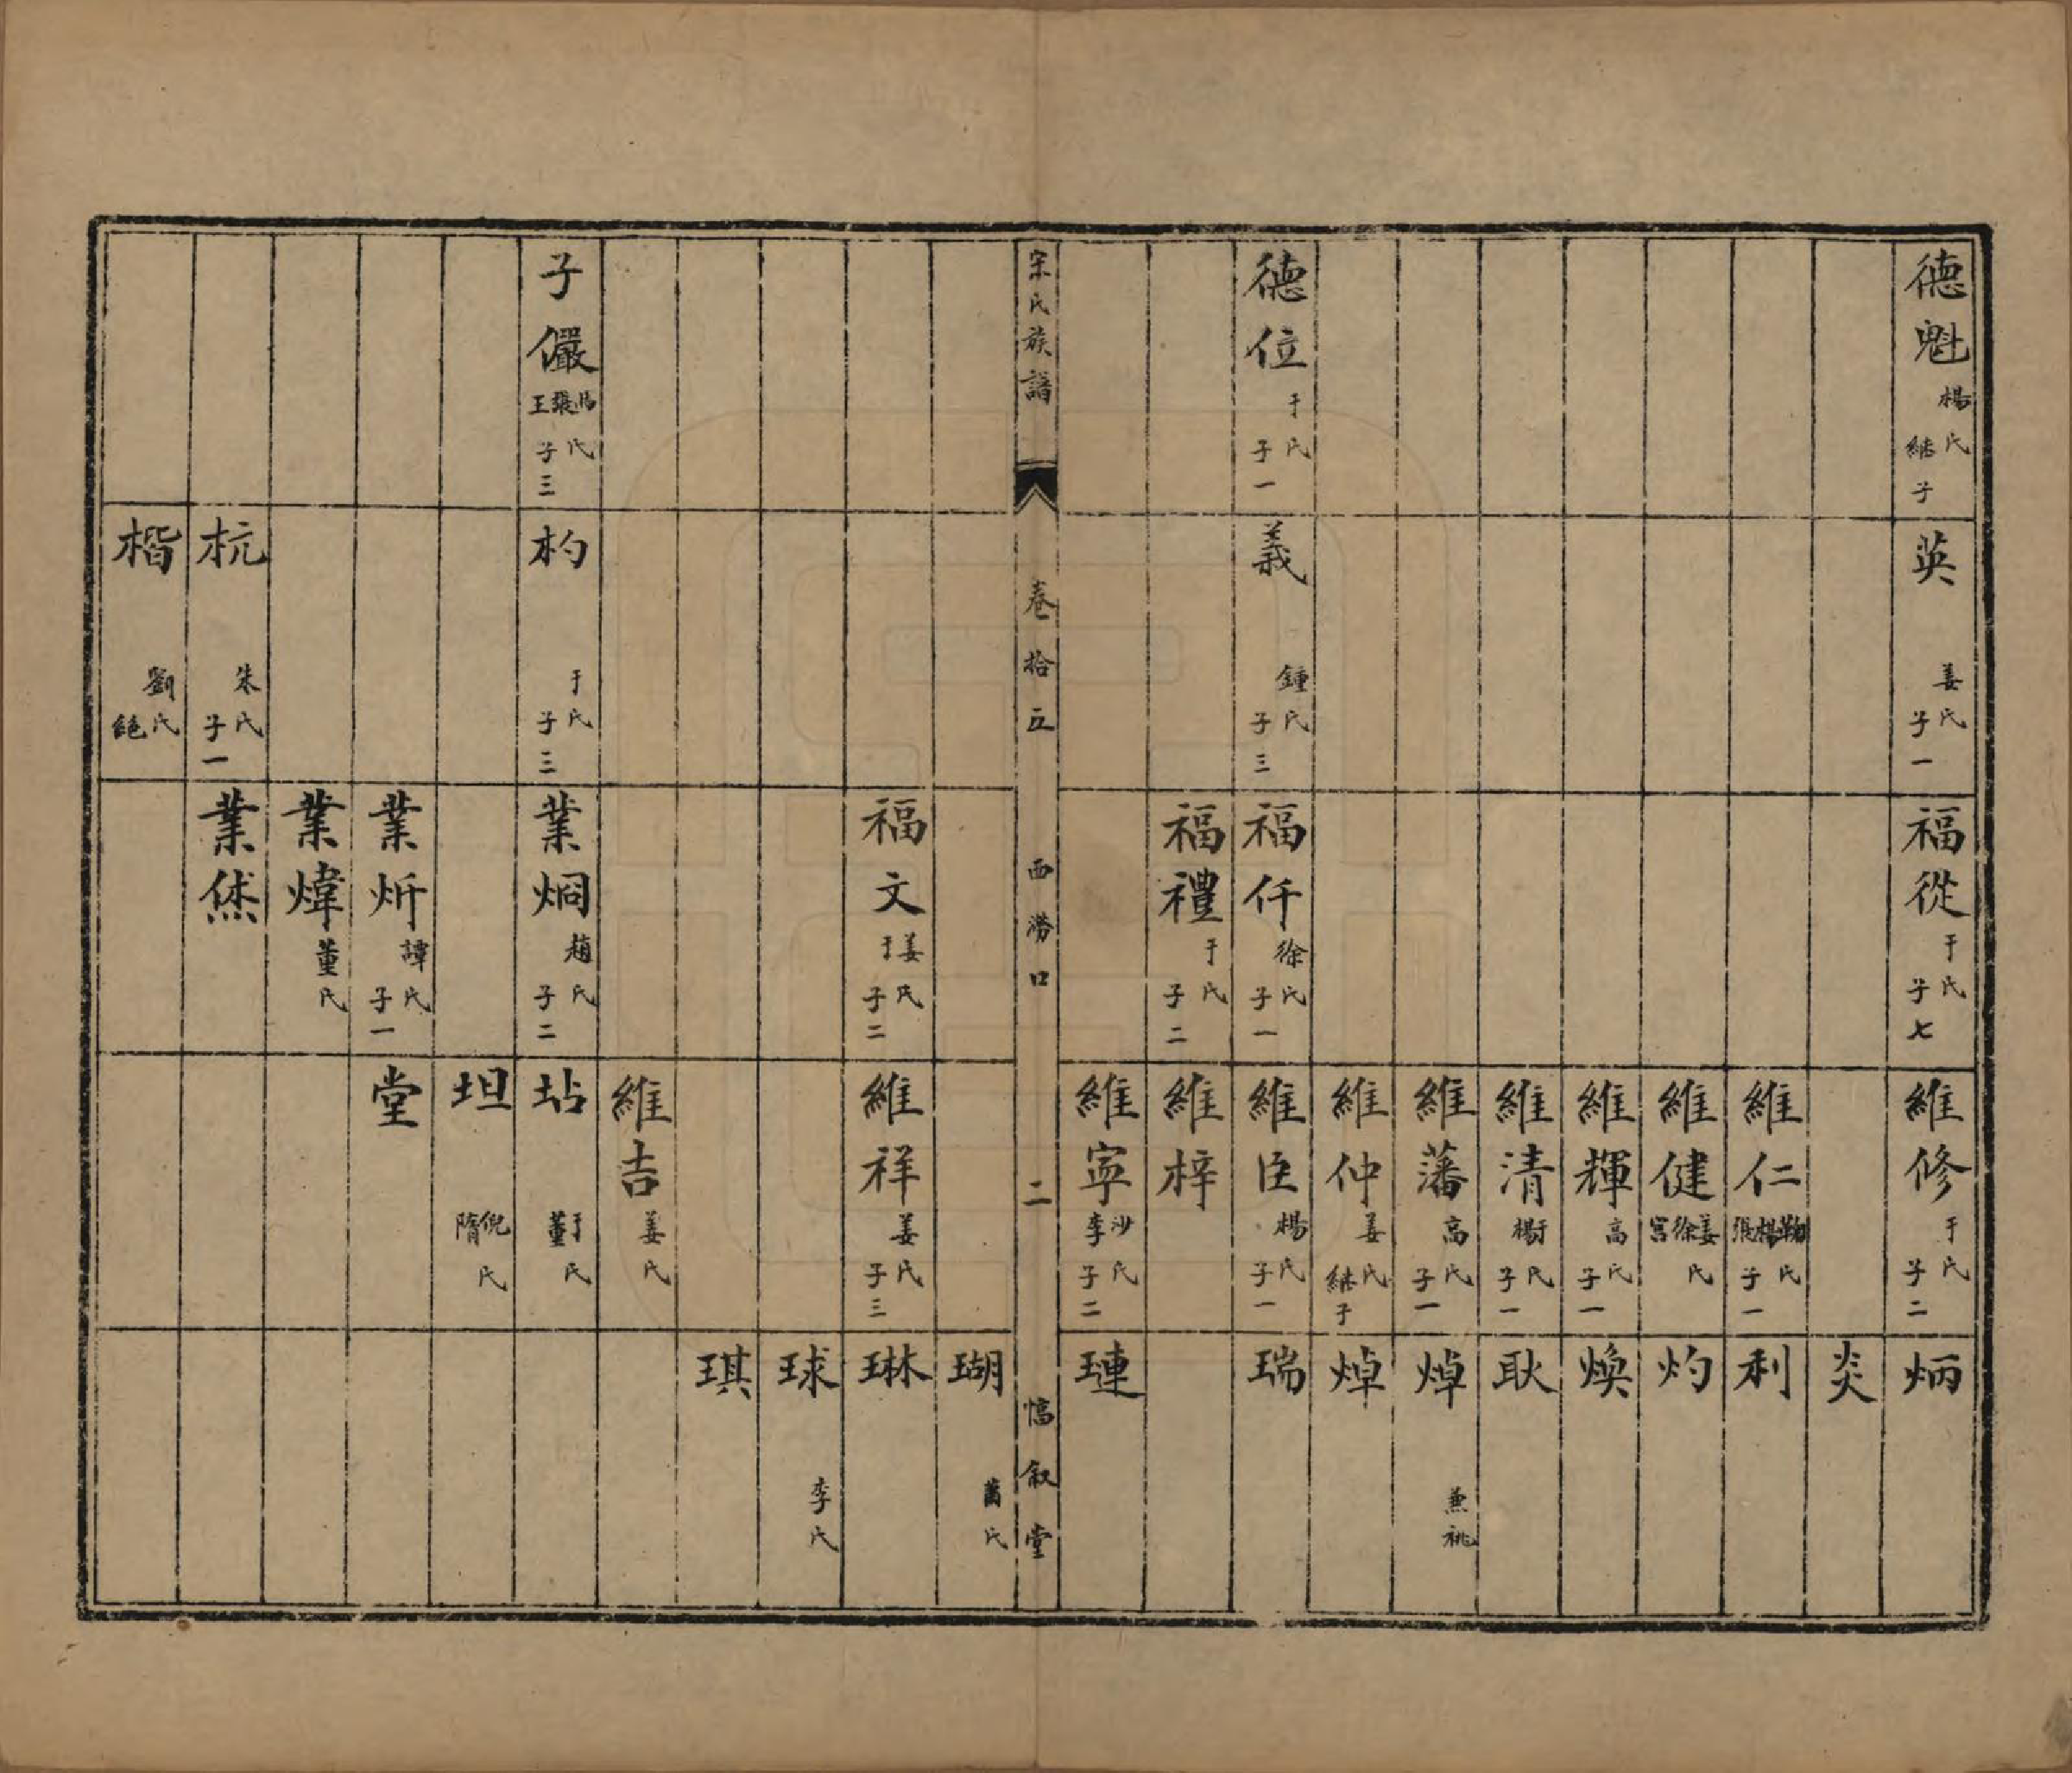 德魁 楊氏 継子
英 姜氏 子一
福從 于氏 子七
維修 于氏 子二
炳
炎
維仁 鞠楊張氏 子一
利
維健 姜徐宮氏
灼
維輝 高氏 子一
煥
維清 于楊氏 子一
耿
維藩 高氏 子一
焯 兼祧
維仲 姜氏 継子
焯
德位 于氏 子一
義 鍾氏 子三
福仟 徐氏 子一
維臣 楊氏 子一
瑞
福禮 于氏 子二
維梓
維寧 沙李氏 子二
璉
宋氏族譜 卷拾五 西澇口 二 惇叙堂
瑚 氏
福文 姜于氏 子二
維祥 姜氏 子三
琳
球 李氏
琪
維吉 姜氏
子儼 馮張王氏 子三
杓 于氏 子三
業烔 趙氏 子二
坫 于董氏
坦 倪隋氏
業炘 譚氏 子一
堂
業煒 董氏
杭 朱氏 子一
業烋
楷 劉氏 絕